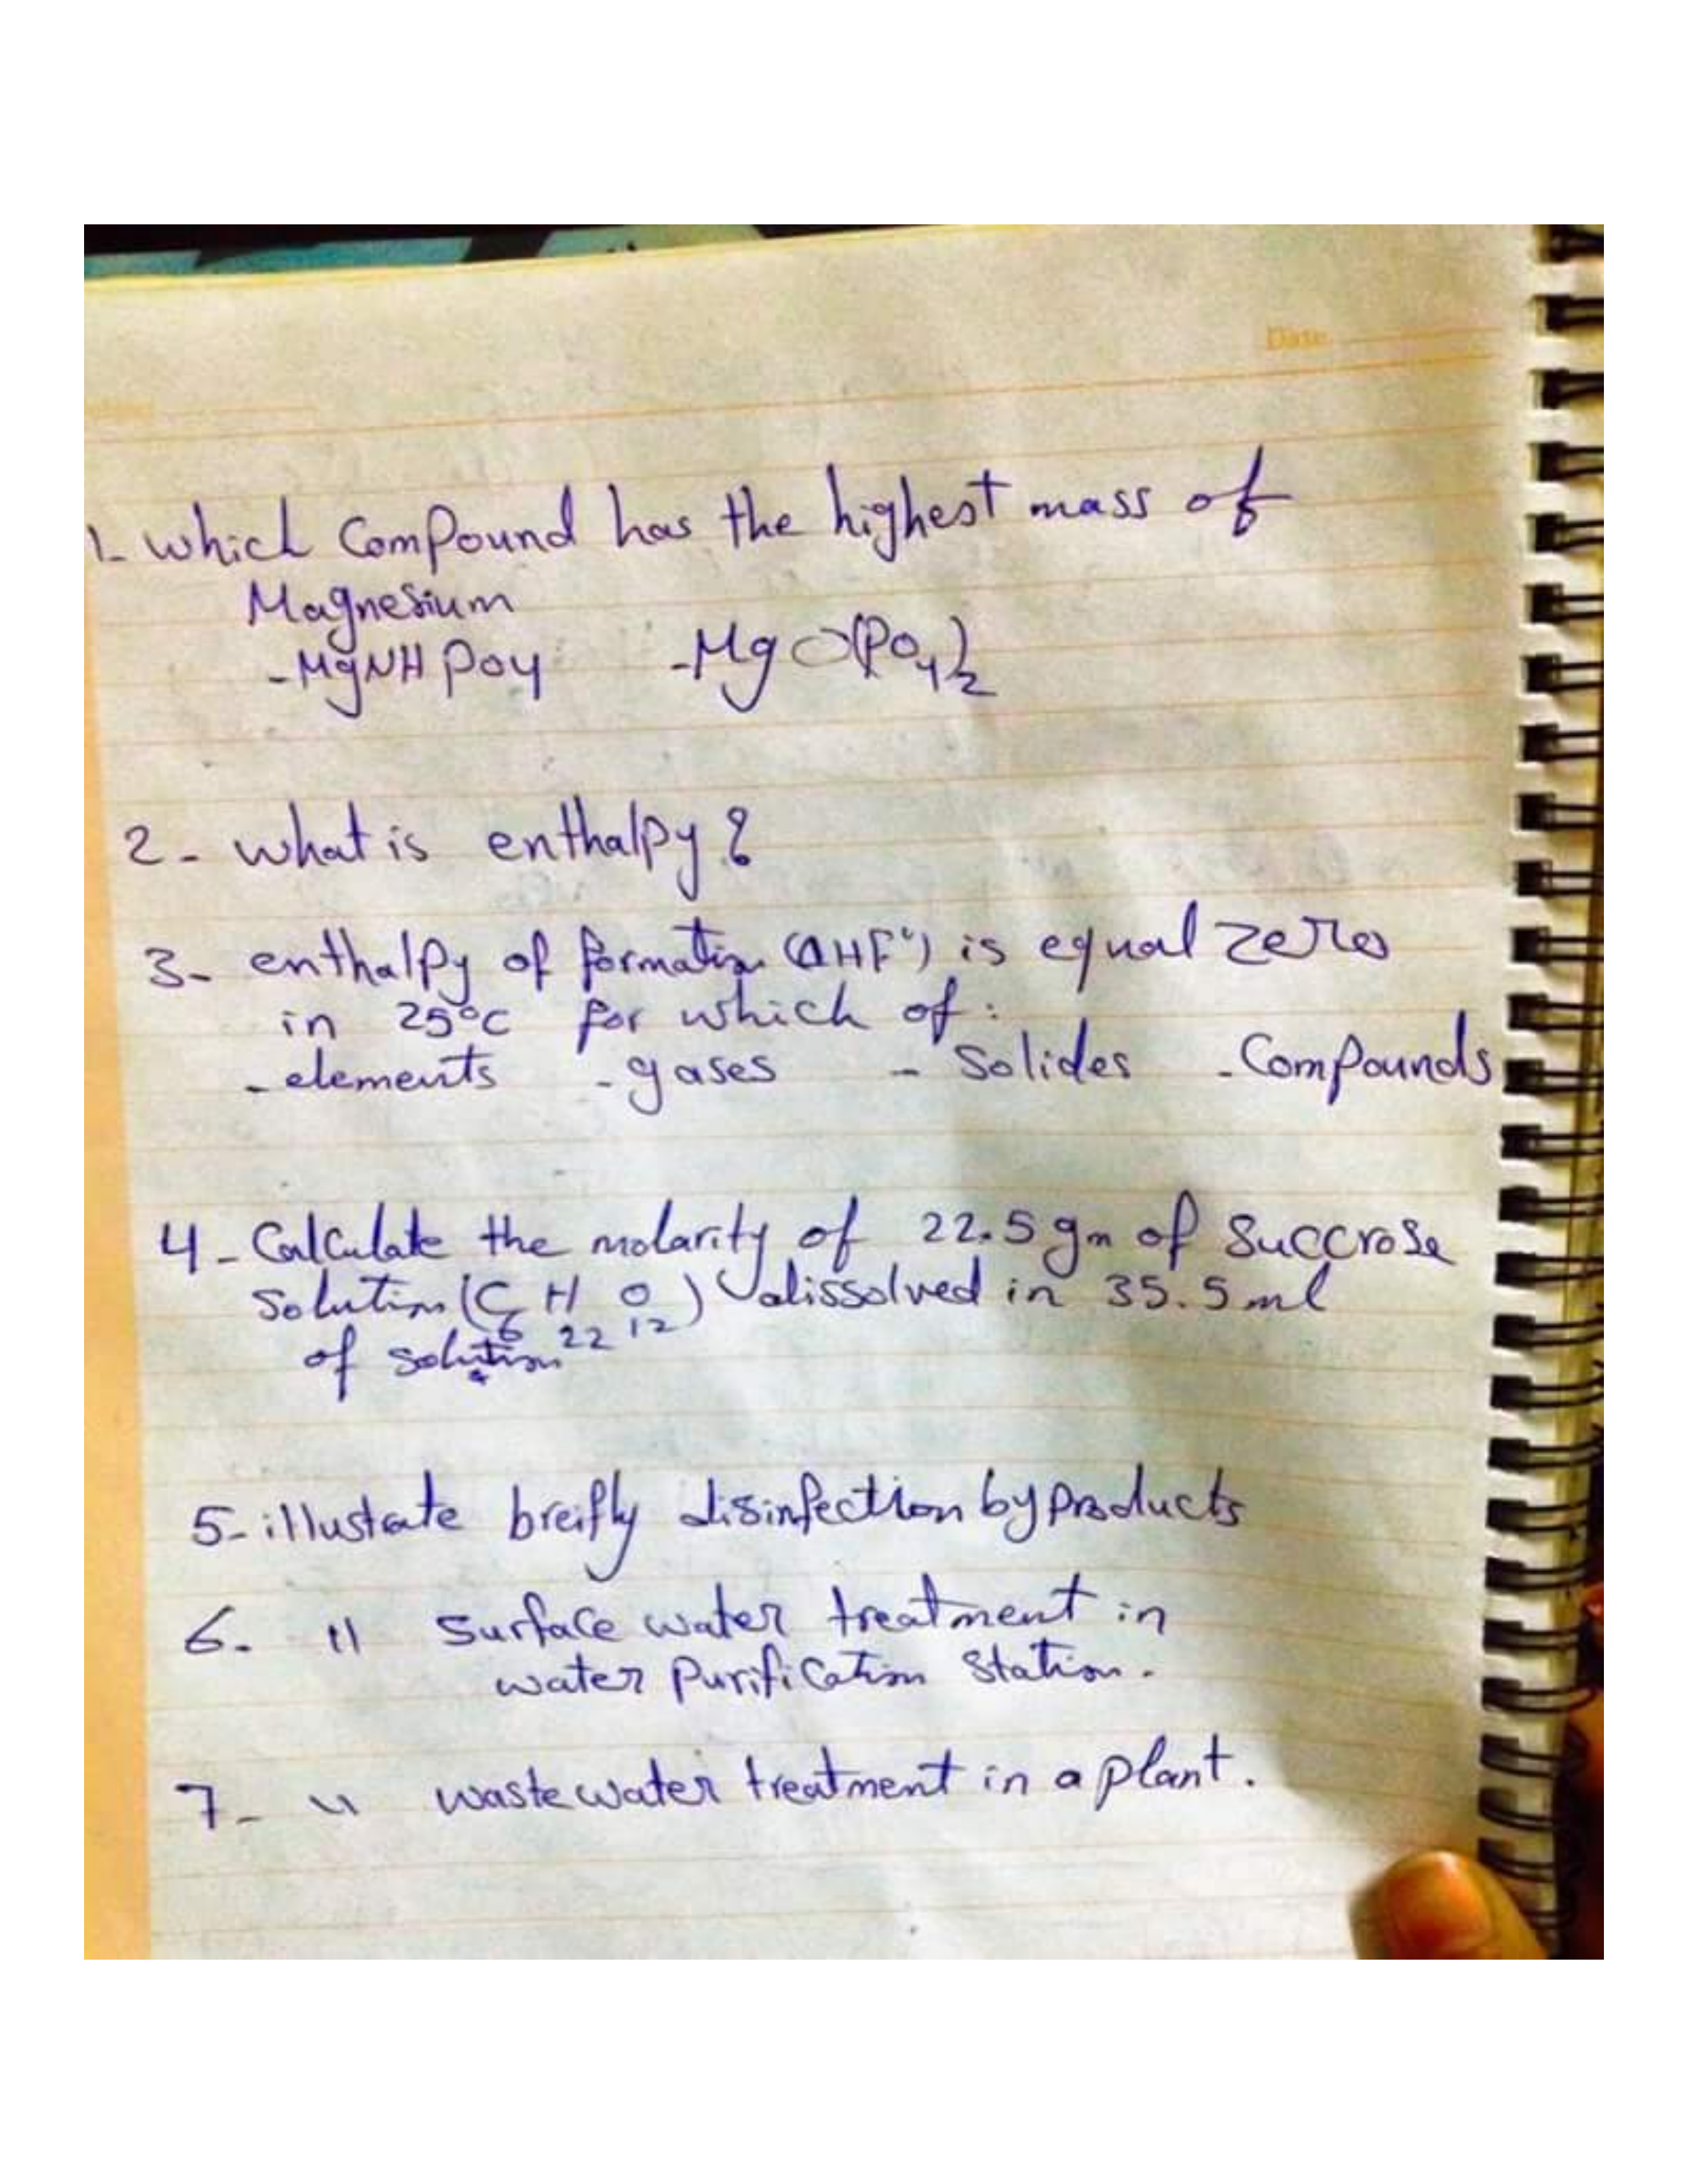 Date
1- which Compound has the highest mass of
Magnesium
- MgNH PO4 - Mg O(PO4)2
2- what is enthalpy?
3- enthalpy of formation (ΔHF°) is equal zero
in 25°C for which of:
- elements - gases - Solides - Compounds
4- Calculate the molarity of 22.5 gm of Succrose
Solution (C6 H22 O12) dissolved in 35.5 ml
of solution
5- illustrate breifly disinfection byproducts
6- 11 Surface water treatment in
water Purification Station.
7- 11 waste water treatment in a plant.